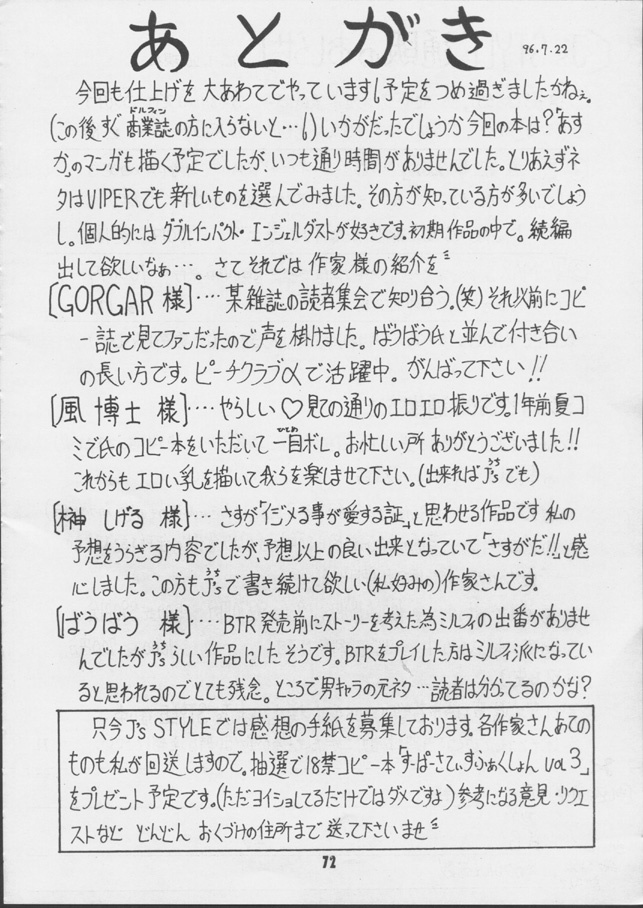 あとがき
96.7.22
今回も仕上げを大あわてでやっています！予定をつめ過ぎましたかねぇ。
ドルフィン
(この後すぐ商業誌の方に入らないと…！)いかがだったでしょうか今回の本は？「あす
か」のマンガも描く予定でしたが、いつも通り時間がありませんでした。とりあえずネ
タはVIPERでも新しいものを選んでみました。その方が知っている方が多いでしょう
し。個人的にはダブルインパクト・エンジェルダストが好きです。初期作品の中で。続編
出して欲しいなぁ…。さてそれでは作家様の紹介を
[GORGAR様]‥‥某雑誌の読者集会で知り合う。(笑)それ以前にコピ
ー誌で見てファンだったので声を掛けました。ばうばう氏と並んで付き合い
の長い方です。ピーチクラブαで活躍中。がんばって下さい!!
[風 博士 様]‥‥やらしい♡見ての通りのエロエロ振りです。1年前夏コ
ひとめ
ミで氏のコピー本をいただいて一目ボレ。お忙しい所ありがとうございました!!
うち
これからもエロい乳を描いて我らを楽しませて下さい。(出来ればJ'sでも)
[榊 しげる 様]‥‥さすが「イジメる事が愛する証」と思わせる作品です私の
予想をうらぎる内容でしたが、予想以上の良い出来となっていて「さすがだ!!」と感
うち
心しました。この方もJ'sで書き続けて欲しい(私好みの)作家さんです。
[ばうばう 様]‥‥BTR発売前にストーリーを考えた為ミルフィの出番がありませ
うち
んでしたがJ'sらしい作品にしたそうです。BTRをプレイした方はミルフィ派になってい
ると思われるのでとても残念。ところで男キャラの元ネタ…読者は分かってるのかな？
只今J's STYLEでは感想の手紙を募集しております。各作家さんあての
ものも私が回送しますので。抽選で18禁コピー本「すーぱーさてぃすふぁくしょん vol 3」
をプレゼント予定です。(ただヨイショしてるだけではダメですよ)参考になる意見・リクエ
ストなど どんどん おくづけの住所まで送って下さいませ
72